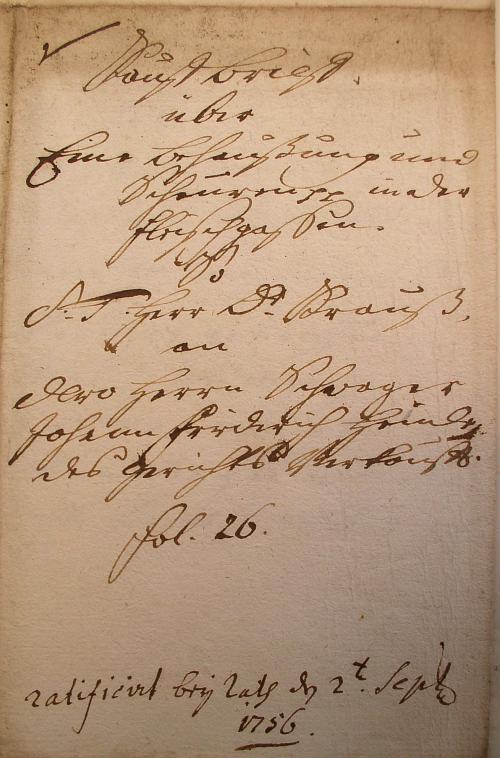 Kauff brieff.
über
Eine Behaußung und
Scheuren pp in der
fleischgassen.
So
S. T. Herr Dr. Strauß,
an
dero Herrn Schwager
Johann Friderich
des Gerichts Verkaufft.
fol. 26.
ratificirt beÿ Rath d 2t. Sept
1756.